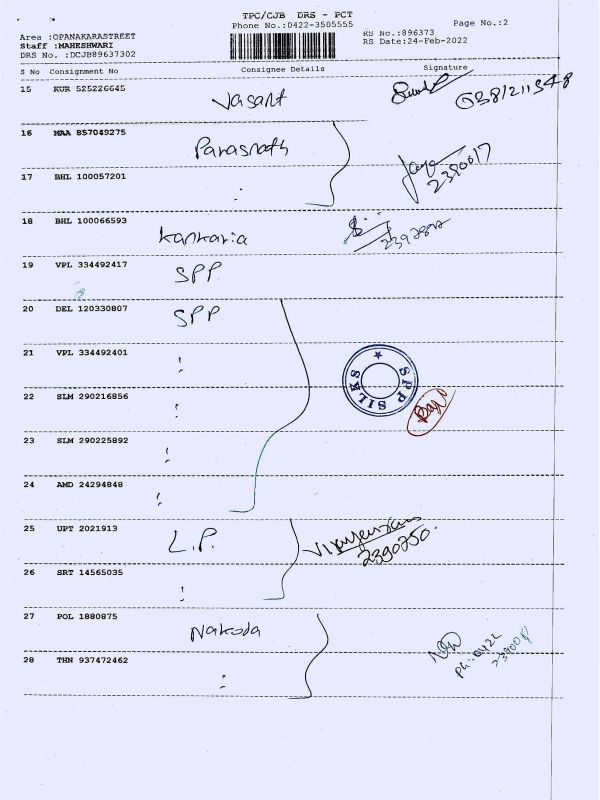 TPC/CJB DRS - PCT
Phone No.:0422-3505555
Page No.:2
Area :OPANAKARASTREET
Staff :MAHESHWARI
DRS No. :DCJB89637302
RS No.:896373
RS Date:24-Feb-2022
S No Consignment No Consignee Details Signature
15 KUR 525226645 Vasant
16 MAA 857049275 Parasnath
17 BHL 100057201 Jaya 2390617
18 BHL 100066593 Kankaria
19 VPL 334492417 SPP
20 DEL 120330807 SPP
21 VPL 334492401
SPP SILKS
22 SLM 290216856
23 SLM 290225892
24 AMD 24294848
25 UPT 2021913 L.P. 2390250.
26 SRT 14565035
27 POL 1880875 Nakoda
28 THN 937472462 Ph: 0422